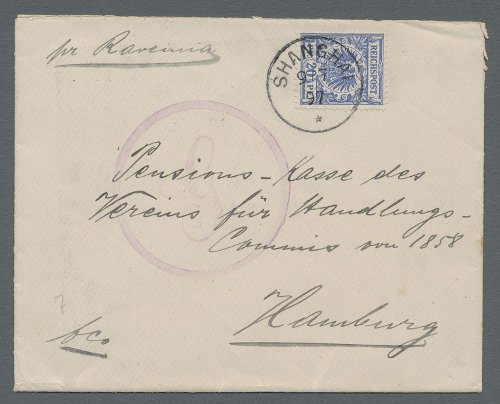 pr Ravenna
SHANGHAI
9
97
REICHSPOST
20
Pensions-Kasse des
Vereins für Handlungs-
Commis von 1858
Hamburg
fco
7